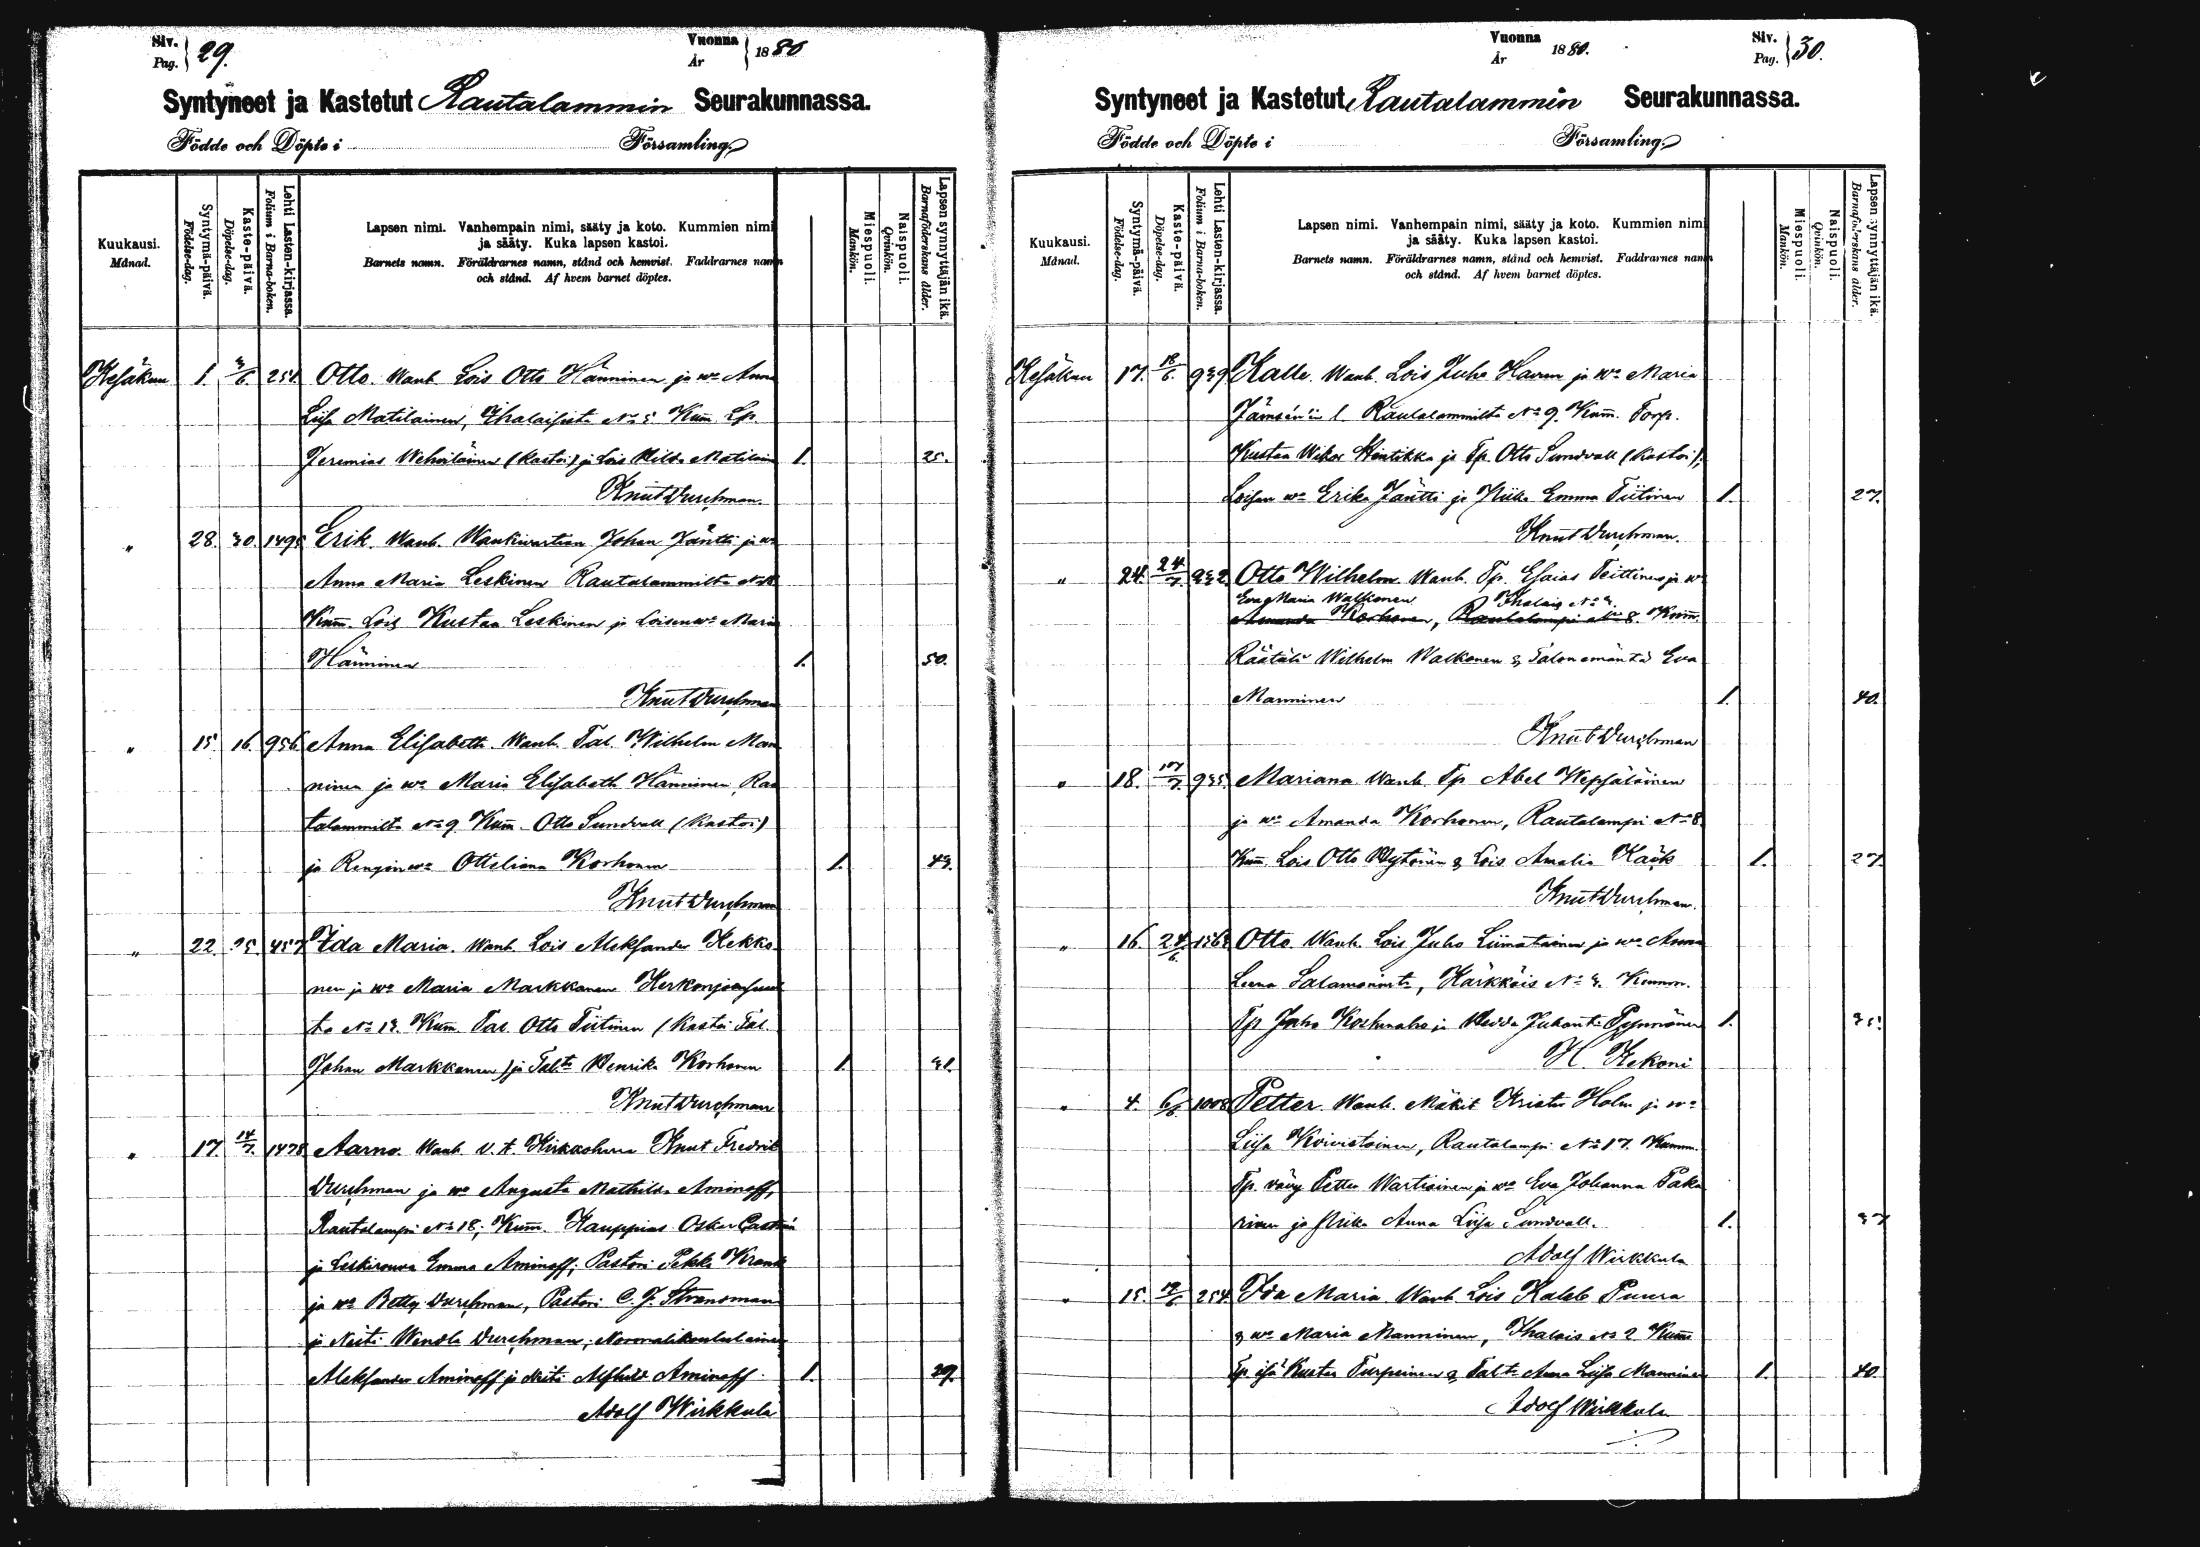 Siv.
Pag. 29.
Vuonna
År 1880
Syntyneet ja Kastetut Rautalammin Seurakunnassa.
Födde och Döpte i Församling.
Kuukausi.
Månad.
Syntymä-päivä.
Födelse-dag.
Kaste-päivä.
Döpelse-dag.
Lehti Lasten-kirjassa.
Folium i Barna-boken.
Lapsen nimi. Vanhempain nimi, sääty ja koto. Kummien nimi
ja sääty. Kuka lapsen kastoi.
Barnets namn. Föräldrarnes namn, stånd och hemvist. Faddrarnes namn
och stånd. Af hvem barnet döptes.
Miespuoli.
Mankön.
Naispuoli.
Qvinkön.
Lapsen synnyttäjän ikä.
Barnaföderskans ålder.
Kesäkuu 1. 3/6. 251. Otto. Wanh. Lois Otto Hänninen ja wo Anna
Liisa Matilainen, No 5 Kum. Lp.
Jeremias Wehviläinen (kastoi) ja Lois Hilda Matilain 1. 25.
Knut Durchman.
" 28. 30. 1495 Erik. Wanh. Wankivartian Johan Jäntti ja wo
Anna Maria Leskinen Rautalammilta
Kum. Lois Kustaa Leskinen ja Loisen wo Maria
Hänninen 1. 50.
Knut Durchman
" 15 16. 956 Anna Elisabeth. Wanh. Tal. Wilhelm Man
ninen ja wo Maria Elisabeth Hänninen, Rau
talammilta No 9 Kum. Otto Sundvall (kastoi)
ja Rengin wo Otteliana Korhonen 1. 43.
Knut Durchman
" 22. 25. 457 Ida Maria. Wanh. Lois Aleksander Kekko
nen ja wo Maria Markkanen
ta No 13. Kum. Tal. Otto Tiitinen (kastoi Tal.
Johan Markkanen) ja Talta Henrika Korhonen 1. 31.
Knut Durchman
" 17. 14/7. 1478 Aarno. Wanh. V. t. Kirkkoherra Knut Fredrik
Durchman ja wo Augusta Mathilda Aminoff,
Rautalampi No 18; Kum. Kauppias Oskar
ja Leskirouva Emma Aminoff; Pastori Pekka
ja wo Betty Durchman, Pastori C. J. Stransman
ja Neiti Wendla Durchman; Normalikoululainen
Aleksander Aminoff ja Neiti Alfhild Aminoff. 1. 29.
Adolf Wirkkula
Vuonna
År 1880.
Siv.
Pag. 30.
Syntyneet ja Kastetut Rautalammin Seurakunnassa.
Födde och Döpte i Församling.
Kuukausi.
Månad.
Syntymä-päivä.
Födelse-dag.
Kaste-päivä.
Döpelse-dag.
Lehti Lasten-kirjassa.
Folium i Barna-boken.
Lapsen nimi. Vanhempain nimi, sääty ja koto. Kummien nimi
ja sääty. Kuka lapsen kastoi.
Barnets namn. Föräldrarnes namn, stånd och hemvist. Faddrarnes namn
och stånd. Af hvem barnet döptes.
Miespuoli.
Mankön.
Naispuoli.
Qvinkön.
Lapsen synnyttäjän ikä.
Barnaföderskans ålder.
Kesäkuu 17. 18/6. 939 Kalle. Wanh. Lois Juho ja wo Maria
Jämsén'in l. Rautalammilta No 9. Kum. Torp.
Kustaa Wikor Hintikka ja Tp. Otto Sundvall (kastoi);
Loisen wo Erika Jäntti ja Piika Emma Tiitinen 1. 27.
Knut Durchman.
" 24. 24/7. 932 Otto Wilhelm. Wanh. Tp. Esaias Teittinen ja wo
Eva Maria Walkonen No 3.
Amanda Korhonen, Rautalampi No 8. Kum.
Räätäli Wilhelm Walkonen & Talonemäntä Eva
Manninen 1. 40.
Knut Durchman
" 18. 935. Mariana. Wanh. Tp. Abel Wepsäläinen
ja wo Amanda Korhonen, Rautalampi No 8.
Kum. Lois Otto Hytönen & Lois Amalia 1. 27.
Knut Durchman.
" 16. 24/6. Otto. Wanh. Lois Juho Liimatainen ja wo Anna
Leena Salamonint, Kärkkäis No 3. Kumm.
Tp. Juho ja Hedda Juhant. Pynnönen 1. 35.
H. Kekoni
" 4. 6/6. 1008 Petter. Wanh. Mäkit. Krister Holm ja wo
Liisa Koivistoinen, Rautalampi No 17. Kumm.
Tp. vävy Petter Wartiainen ja wo Eva Johanna Paka
rinen ja piika Anna Liisa Sundvall. 1. 37
Adolf Wirkkula
" 15. 254. Ida Maria. Wanh. Lois Kaleb Puura
& wo Maria Manninen, No 2 Kum.
Tp. isä Kusta Turpeinen & Talt. Anna Liisa Manninen 1. 40.
Adolf Wirkkula